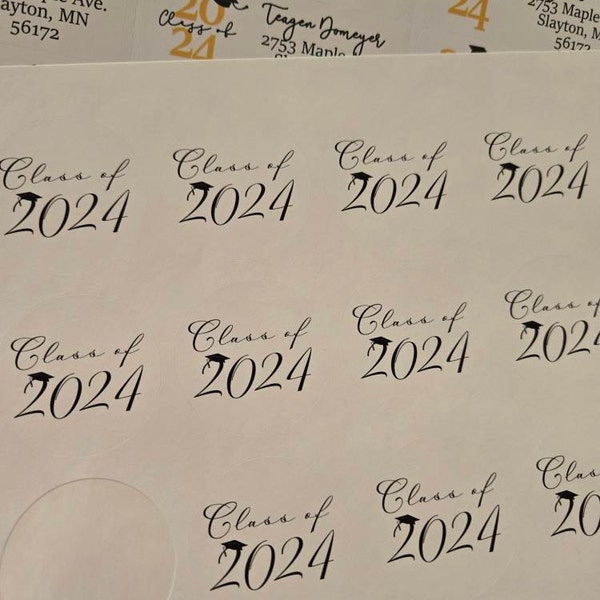 ple Ave.
layton, MN
56172
20
Class of
24
Teagen Domeyer
2753 Maple
24
2753 Maple
Slayton, MN
56172
Class of
2024
Class of
2024
Class of
2024
Class of
2024
Class of
2024
Class of
2024
Class of
2024
Class of
2024
Class of
2024
Class of
2024
Class
20